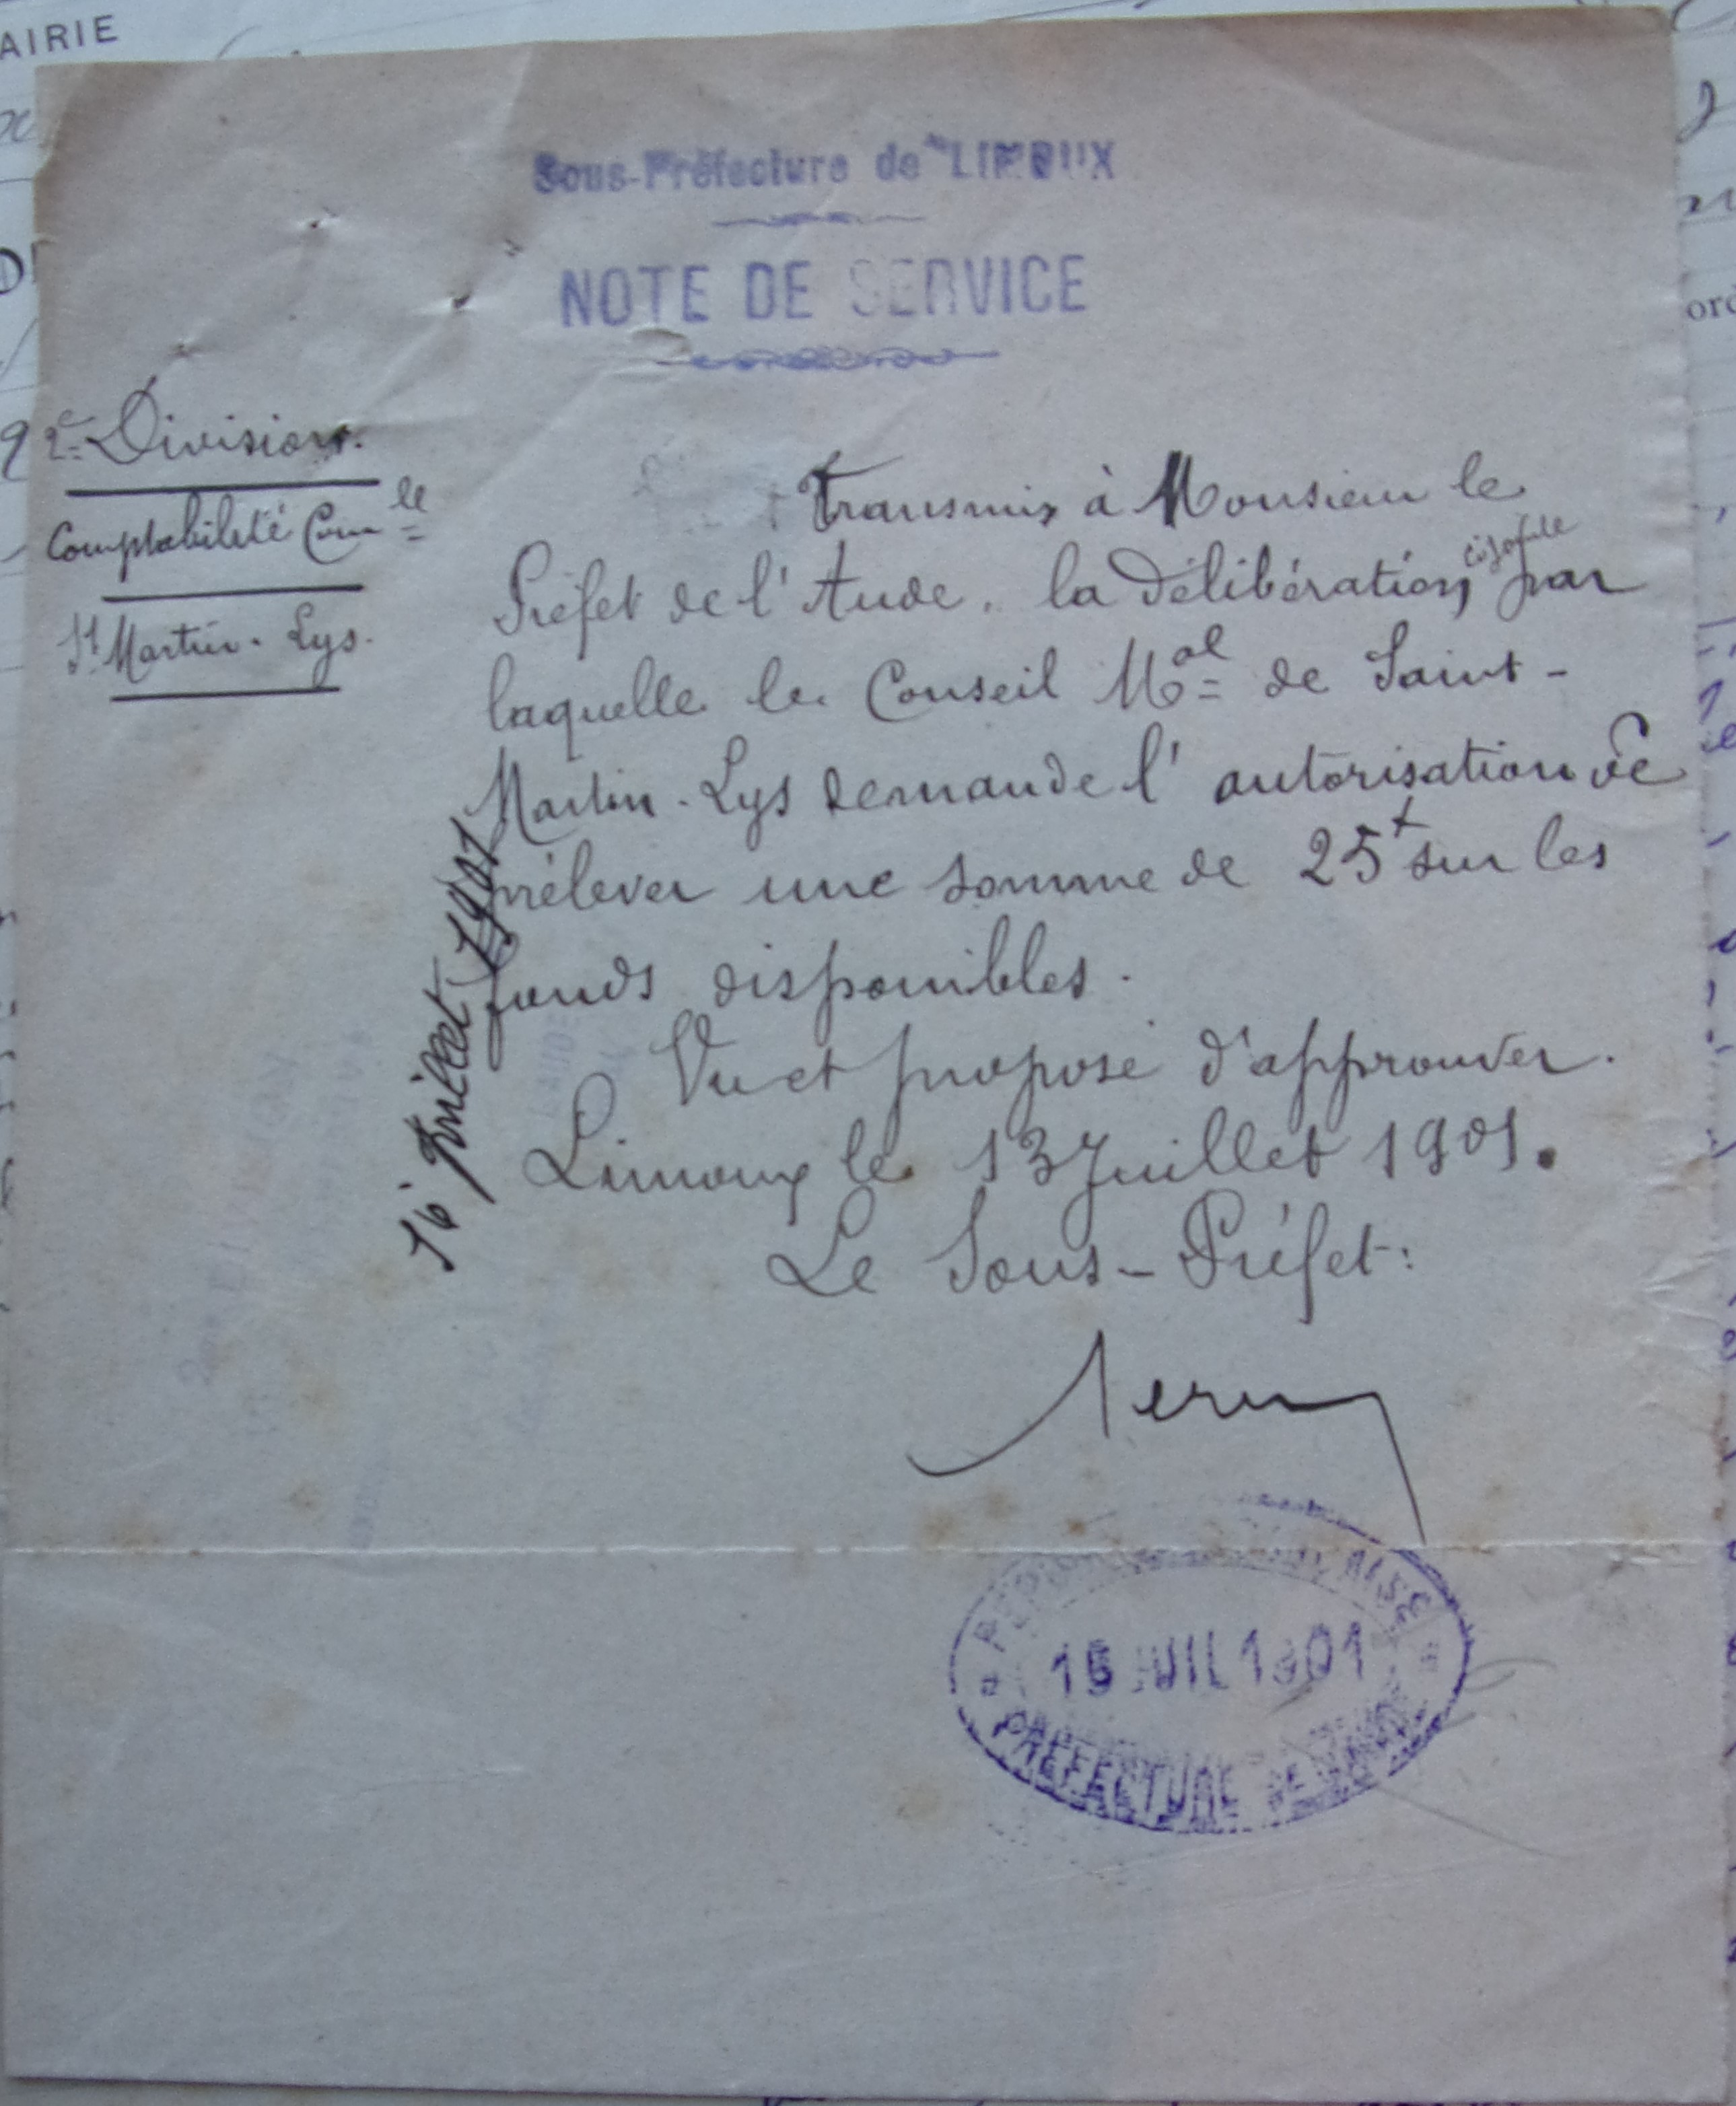 AIRIE
Sous-Préfecture de LIMOUX
NOTE DE SERVICE
2e Division.
Comptabilité Comle
St Martin-Lys.
Transmis à Monsieur le
Préfet de l'Aude, la délibération, ci-jointe par
laquelle le Conseil Mal de Saint-
Martin-Lys demande l'autorisation de
prélever une somme de 25f sur les
fonds disponibles.
Vu et proposé d'approuver.
Limoux le 13 Juillet 1901.
Le Sous-Préfet:
16 Juillet 1901
REPUBLIQUE FRANÇAISE
15 JUIL 1901
PREFECTURE DE L'AUDE